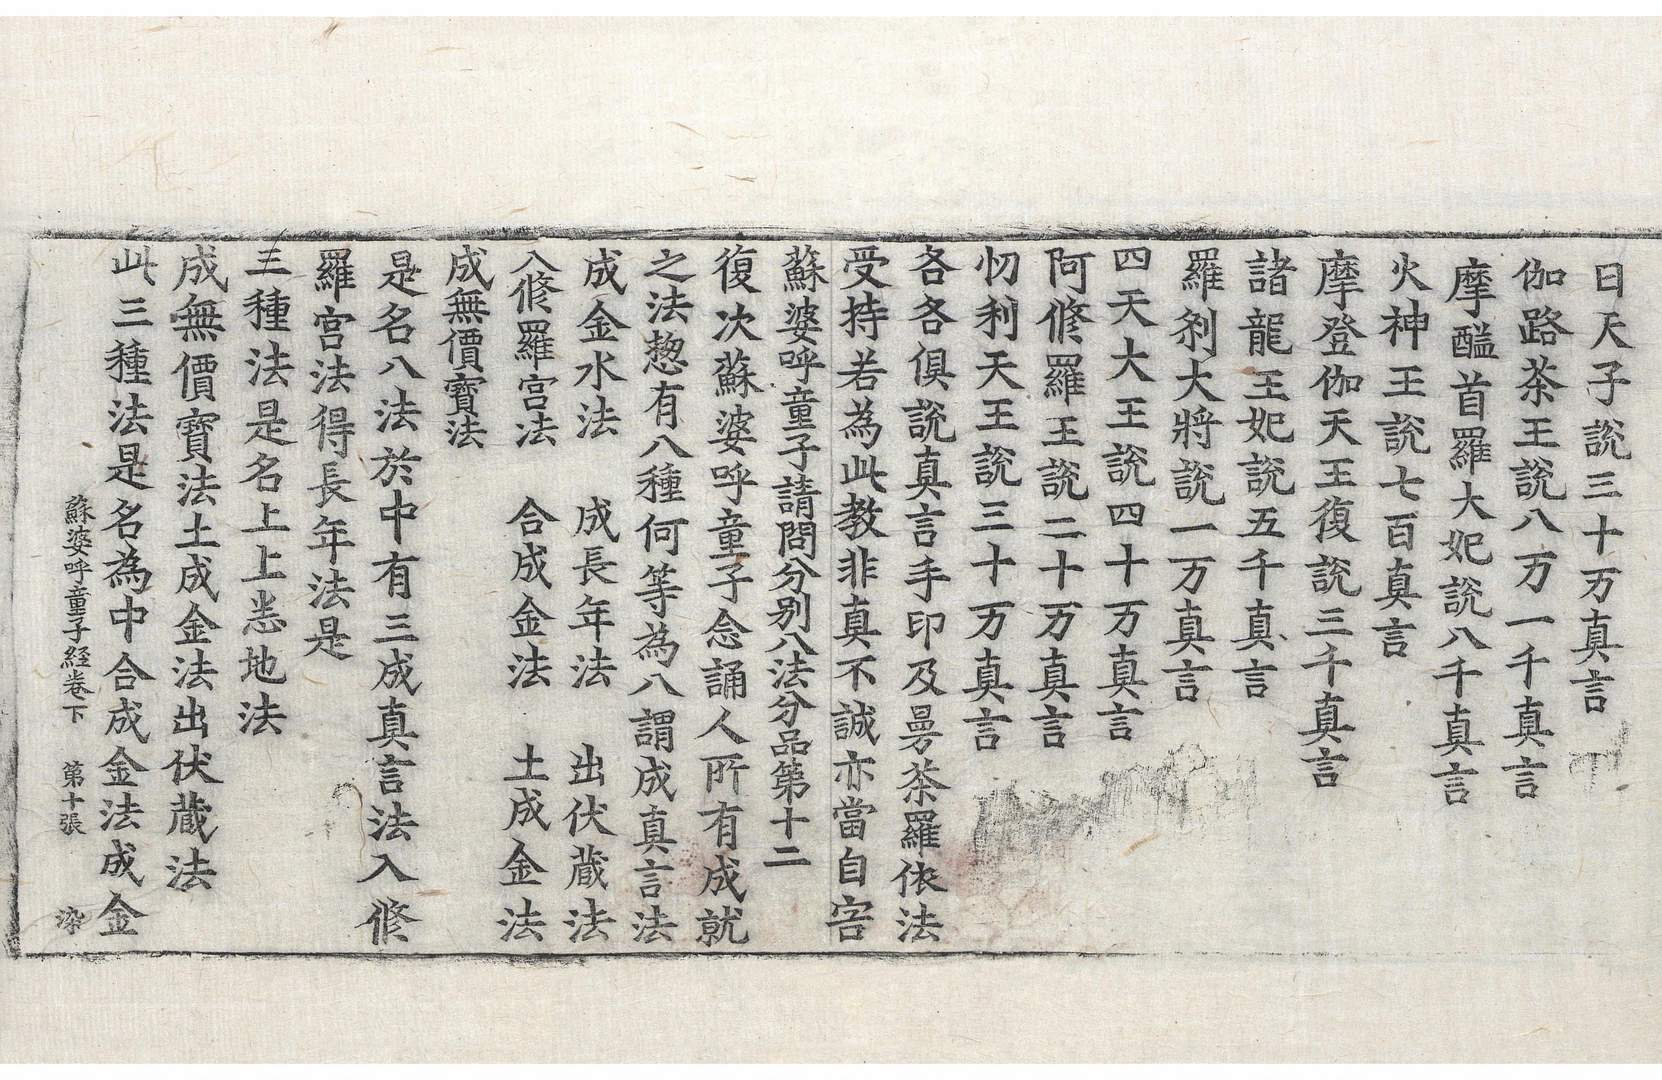 日天子說三十万真言
伽路茶王說八万一千真言
摩醯首羅大妃說八千真言
火神王說七百真言
摩登伽天王復說三千真言
諸龍王妃說五千真言
羅剎大將說一万真言
四天大王說四十万真言
阿修羅王說二十万真言
忉利天王說三十万真言
各各俱說真言手印及曼茶羅依法
受持若為此教非真不誠亦當自害
蘇婆呼童子請問分別八法分品第十二
復次蘇婆呼童子念誦人所有成就
之法惣有八種何等為八謂成真言法
成金水法　成長年法　出伏蔵法
入修羅宮法　合成金法　土成金法
成無價寳法
是名八法於中有三成真言法入修
羅宮法得長年法是
三種法是名上上悉地法
成無價寳法土成金法出伏蔵法
此三種法是名為中合成金法成金
蘇婆呼童子経卷下　第十張　染